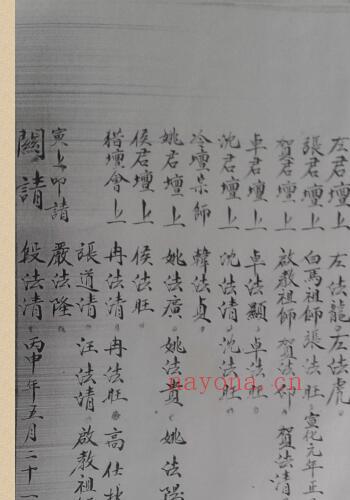 左君壇上 左法龍 左法虎
張君壇上 白馬祖師 張法旺 宣化元年正
賀君壇上 啟教祖師 賀法 賀法清
卓君壇上 卓法顯 卓法旺
沈君壇上 沈法清 沈法旺
冷壇宗師 韓法貞
姚君壇上 姚法廣 姚法貴 姚法陽
侯君壇上 侯法旺
楷壇會上 冉法清 冉法旺 高仕
張道清 汪法清 啟教祖
寅上叩請 嚴法隆
關請 段法清 丙申年五月二十一
nayona.cn